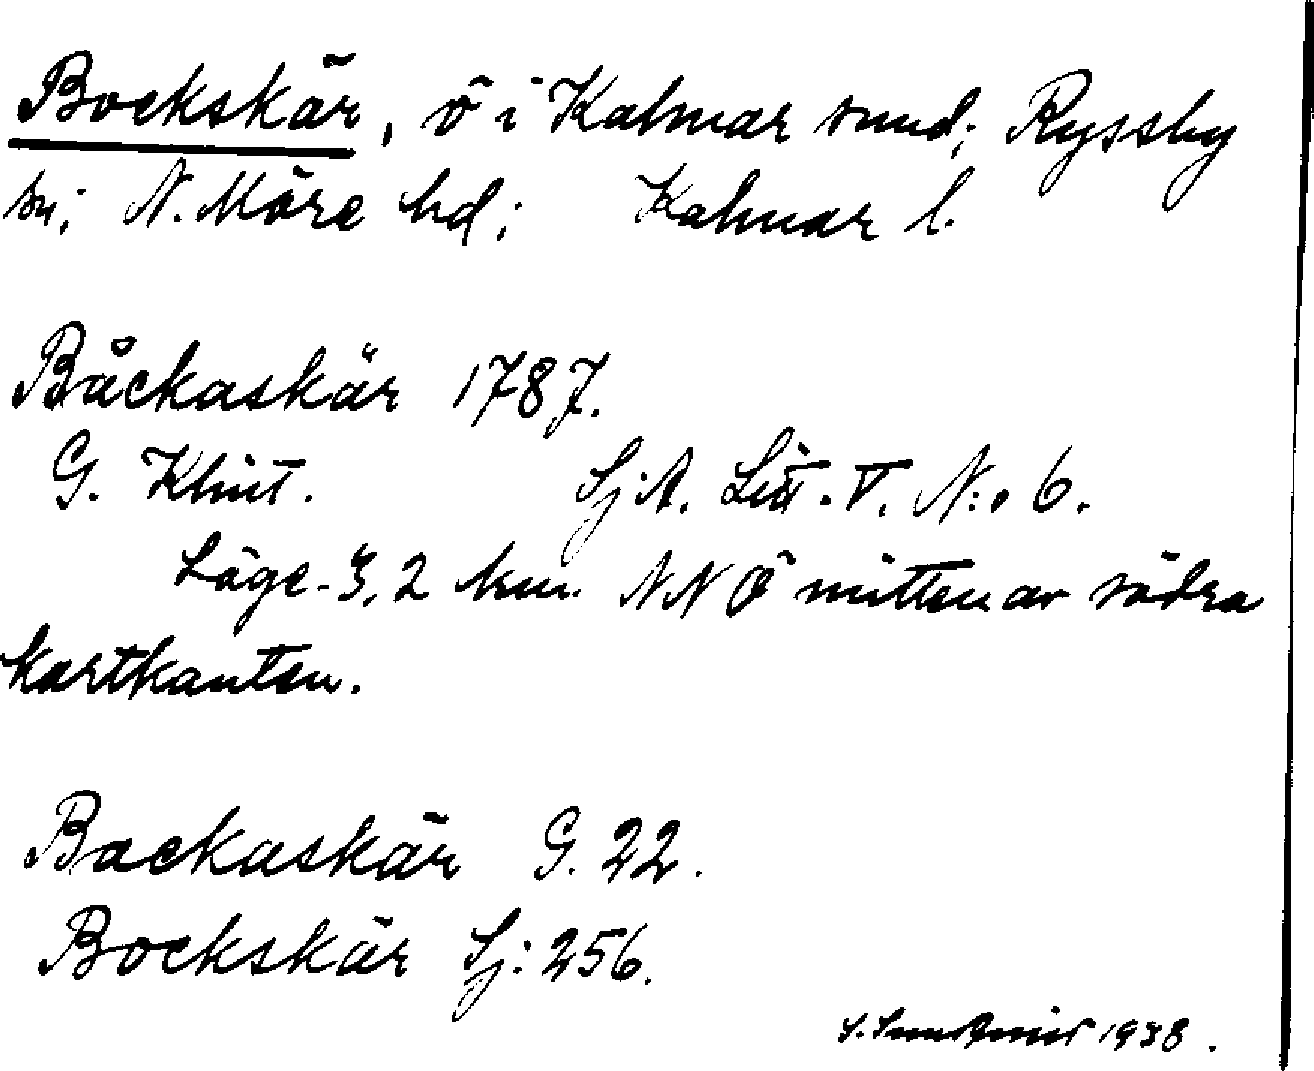 Bockskär, ö i Kalmar sund; Ryssby
sn; N. Möre hd; Kalmar l.
Båckaskär 1787.
G. Klint. Sj:A. Litt. V. N:o 6.
Läge - 3,2 km. NNÖ mitten av södra
kartkanten.
Backaskär G. 22.
Bockskär Sj: 256.
S. 1938.